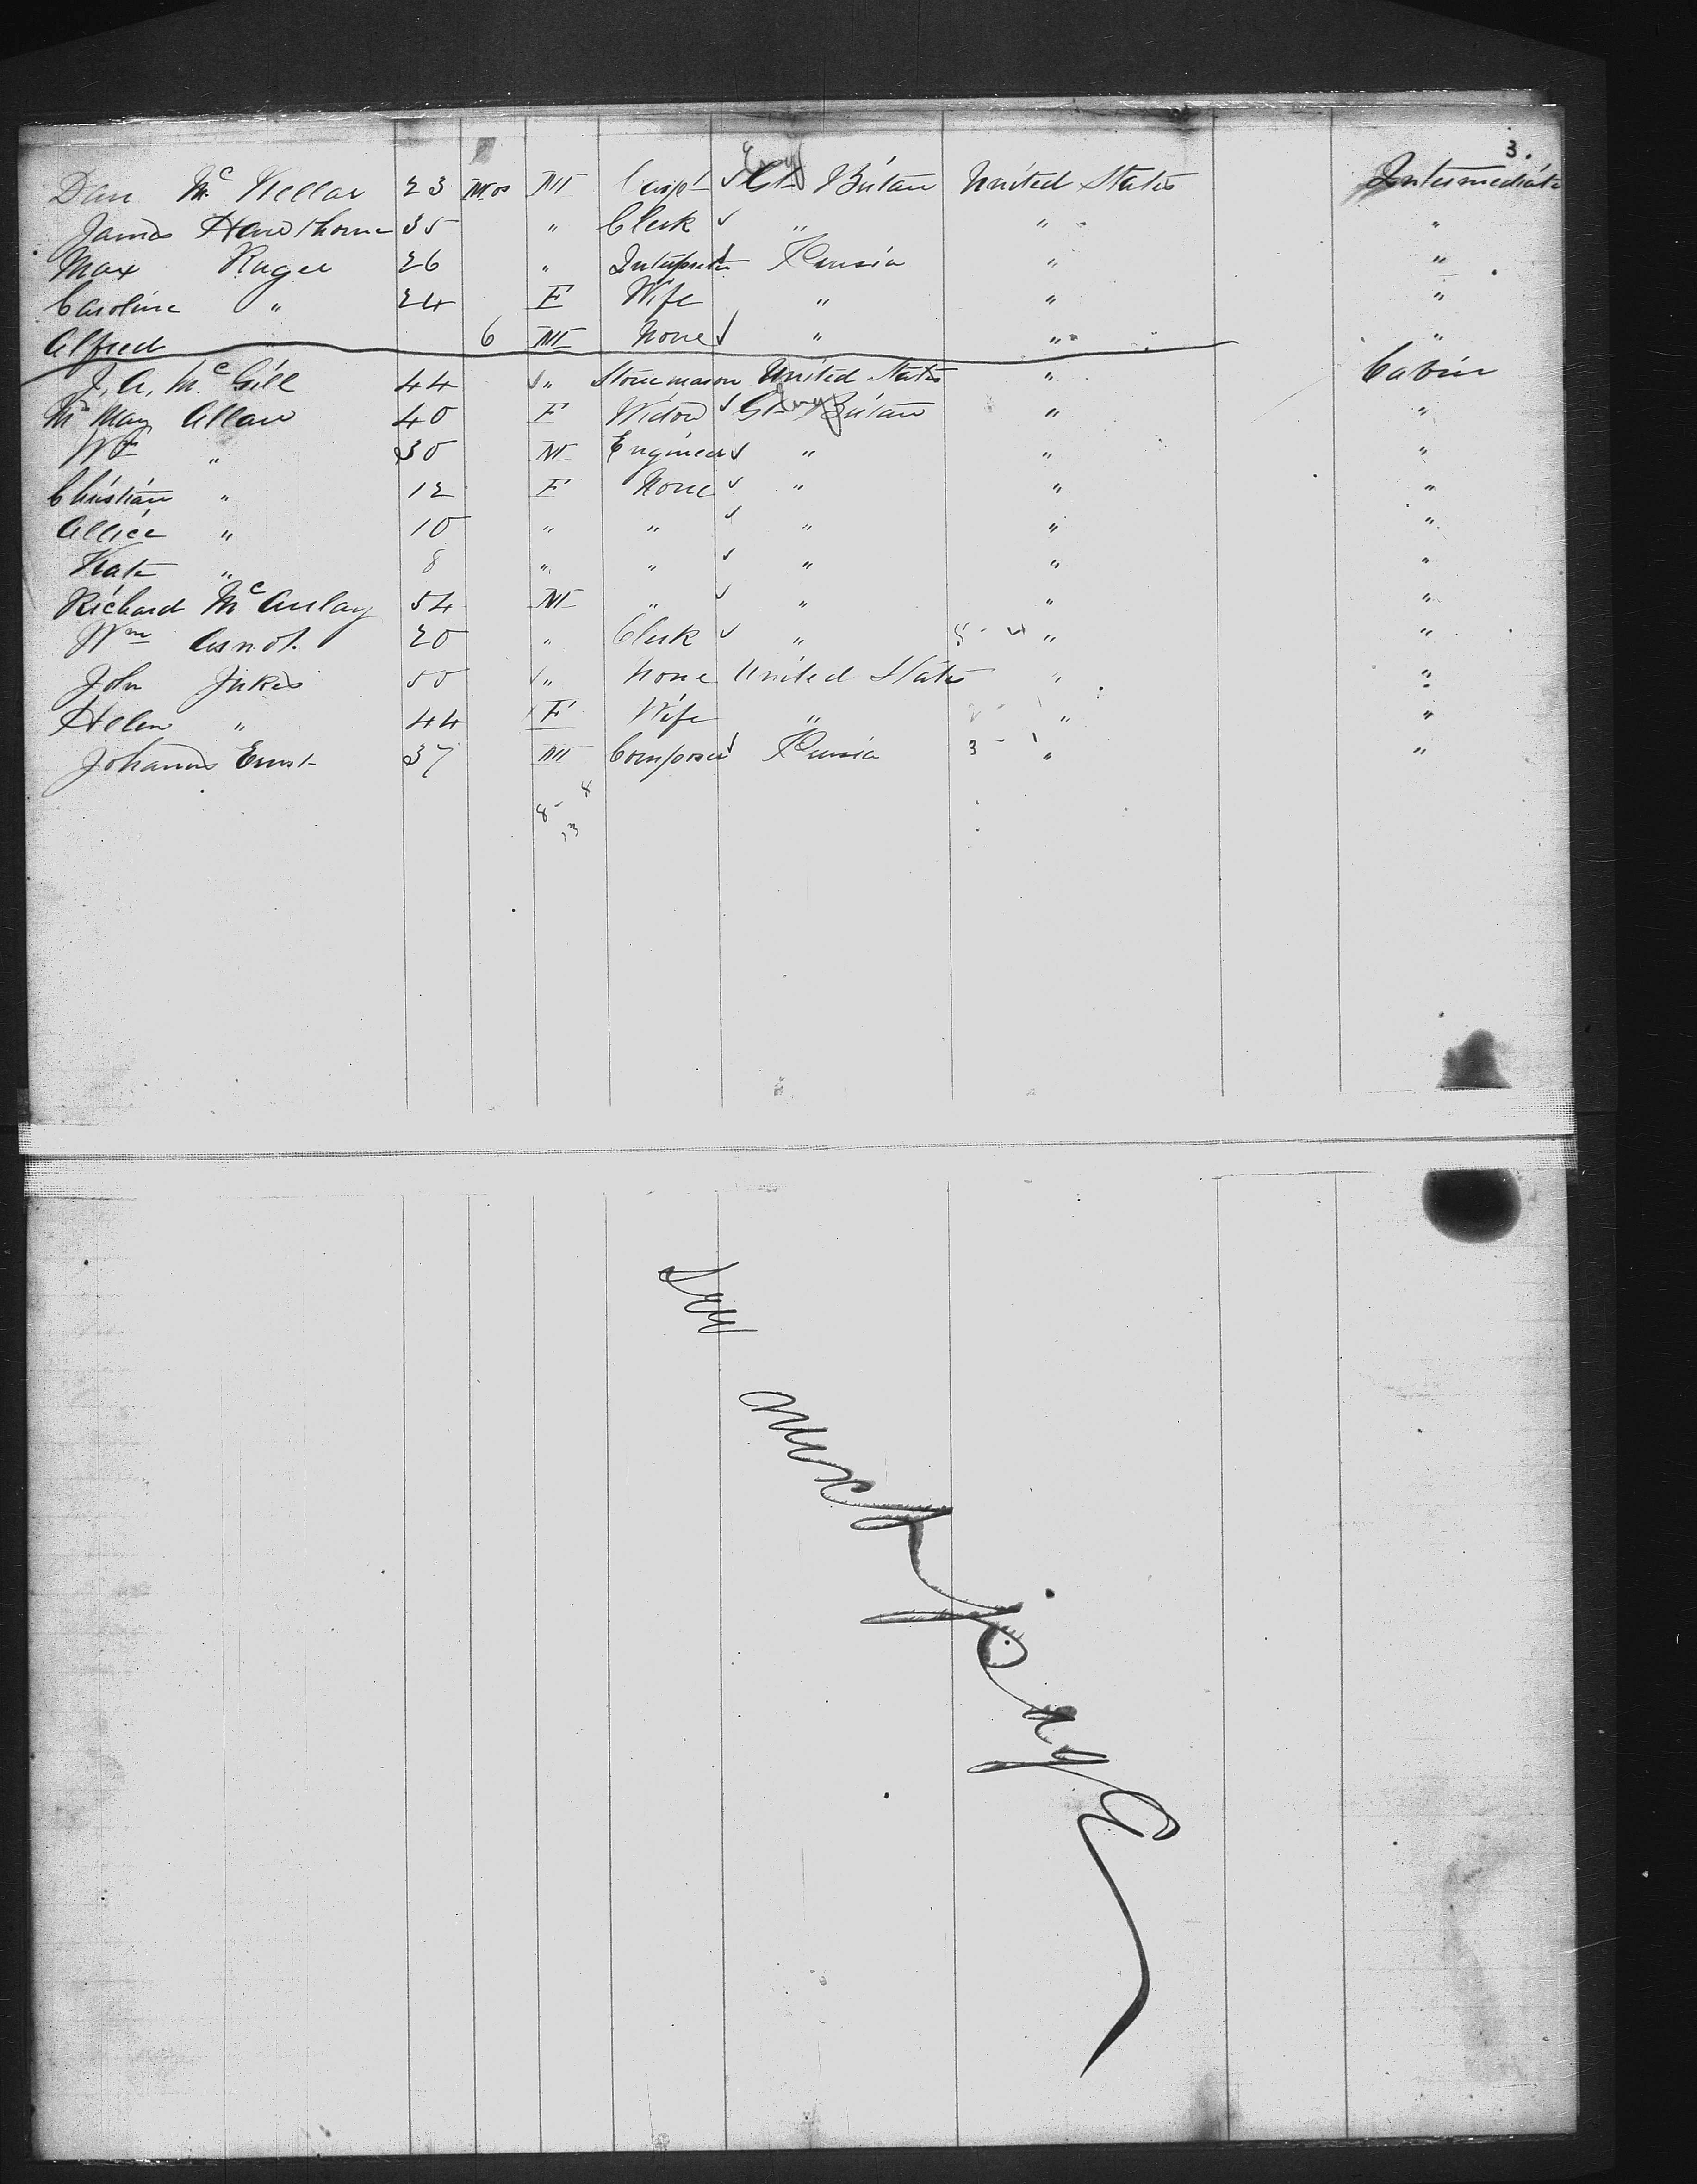 3.
Dan McKellar 23 Mos M Carp't ✓ Gt Britain United States Intermediate
James Hawthorne 35 " Clerk ✓ " " "
Max Ruger 26 " Interpreter ✓ Prussia " "
Caroline " 24 F Wife " " "
Alfred 6 M None ✓ " " "
J. A. McGill 44 ✓ " Stonemason United States " Cabin
Mrs May Allan 40 F Widow ✓ Gt Britain " "
Wm " 30 M Engineer ✓ " " "
Christian " 12 F None ✓ " " "
Allice " 10 " " ✓ " " "
Kate " 8 " " ✓ " " "
Richard McAulay 54 M " ✓ " " "
Wm Arnot 20 " Clerk ✓ " " "
John Jukes 50 ✓ " None United States " "
Helen " 44 F Wife " " "
Johannes Ernst 37 M Composer ✓ Prussia 3 - 1 " "
8 - 8
13